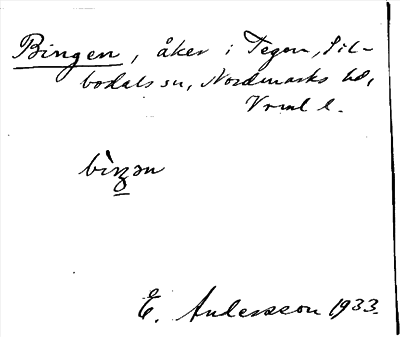 Bingen, åker i Tegen, Sil-
bodals sn, Nordmarks hd,
Vrml l.
E. Andersson 1933.